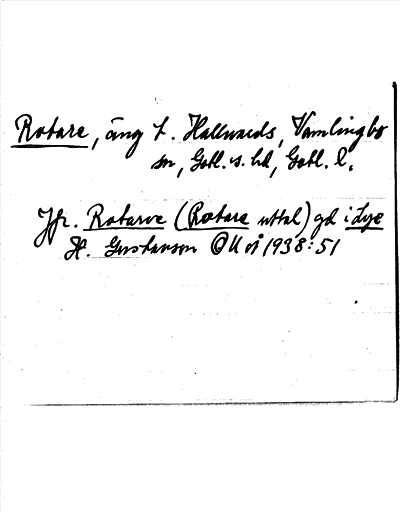 Rotare, äng t. Hallvards, Vamlingbo
sn, Gotl. s. hd, Gotl. l.
Jfr. Rotarve (Rotare uttal) gd i Lye
H. Gustavson OUÅ 1938:51